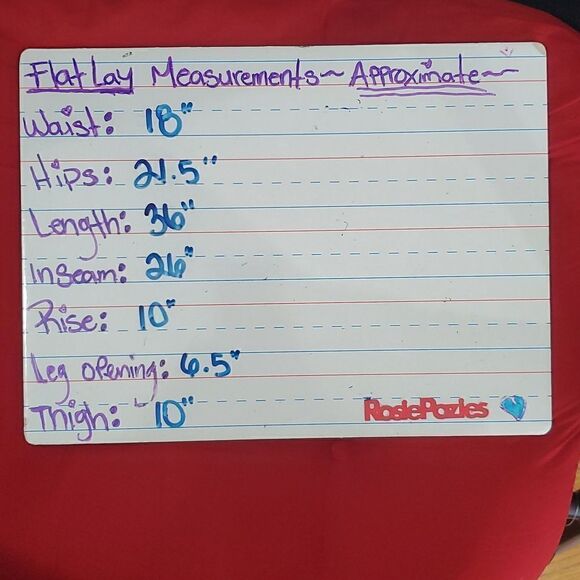 Flat Lay Measurements~ Approximate~
Waist: 18"
Hips: 21.5"
Length: 36"
Inseam: 26"
Rise: 10"
Leg opening: 6.5"
Thigh: 10"
RosiePozies